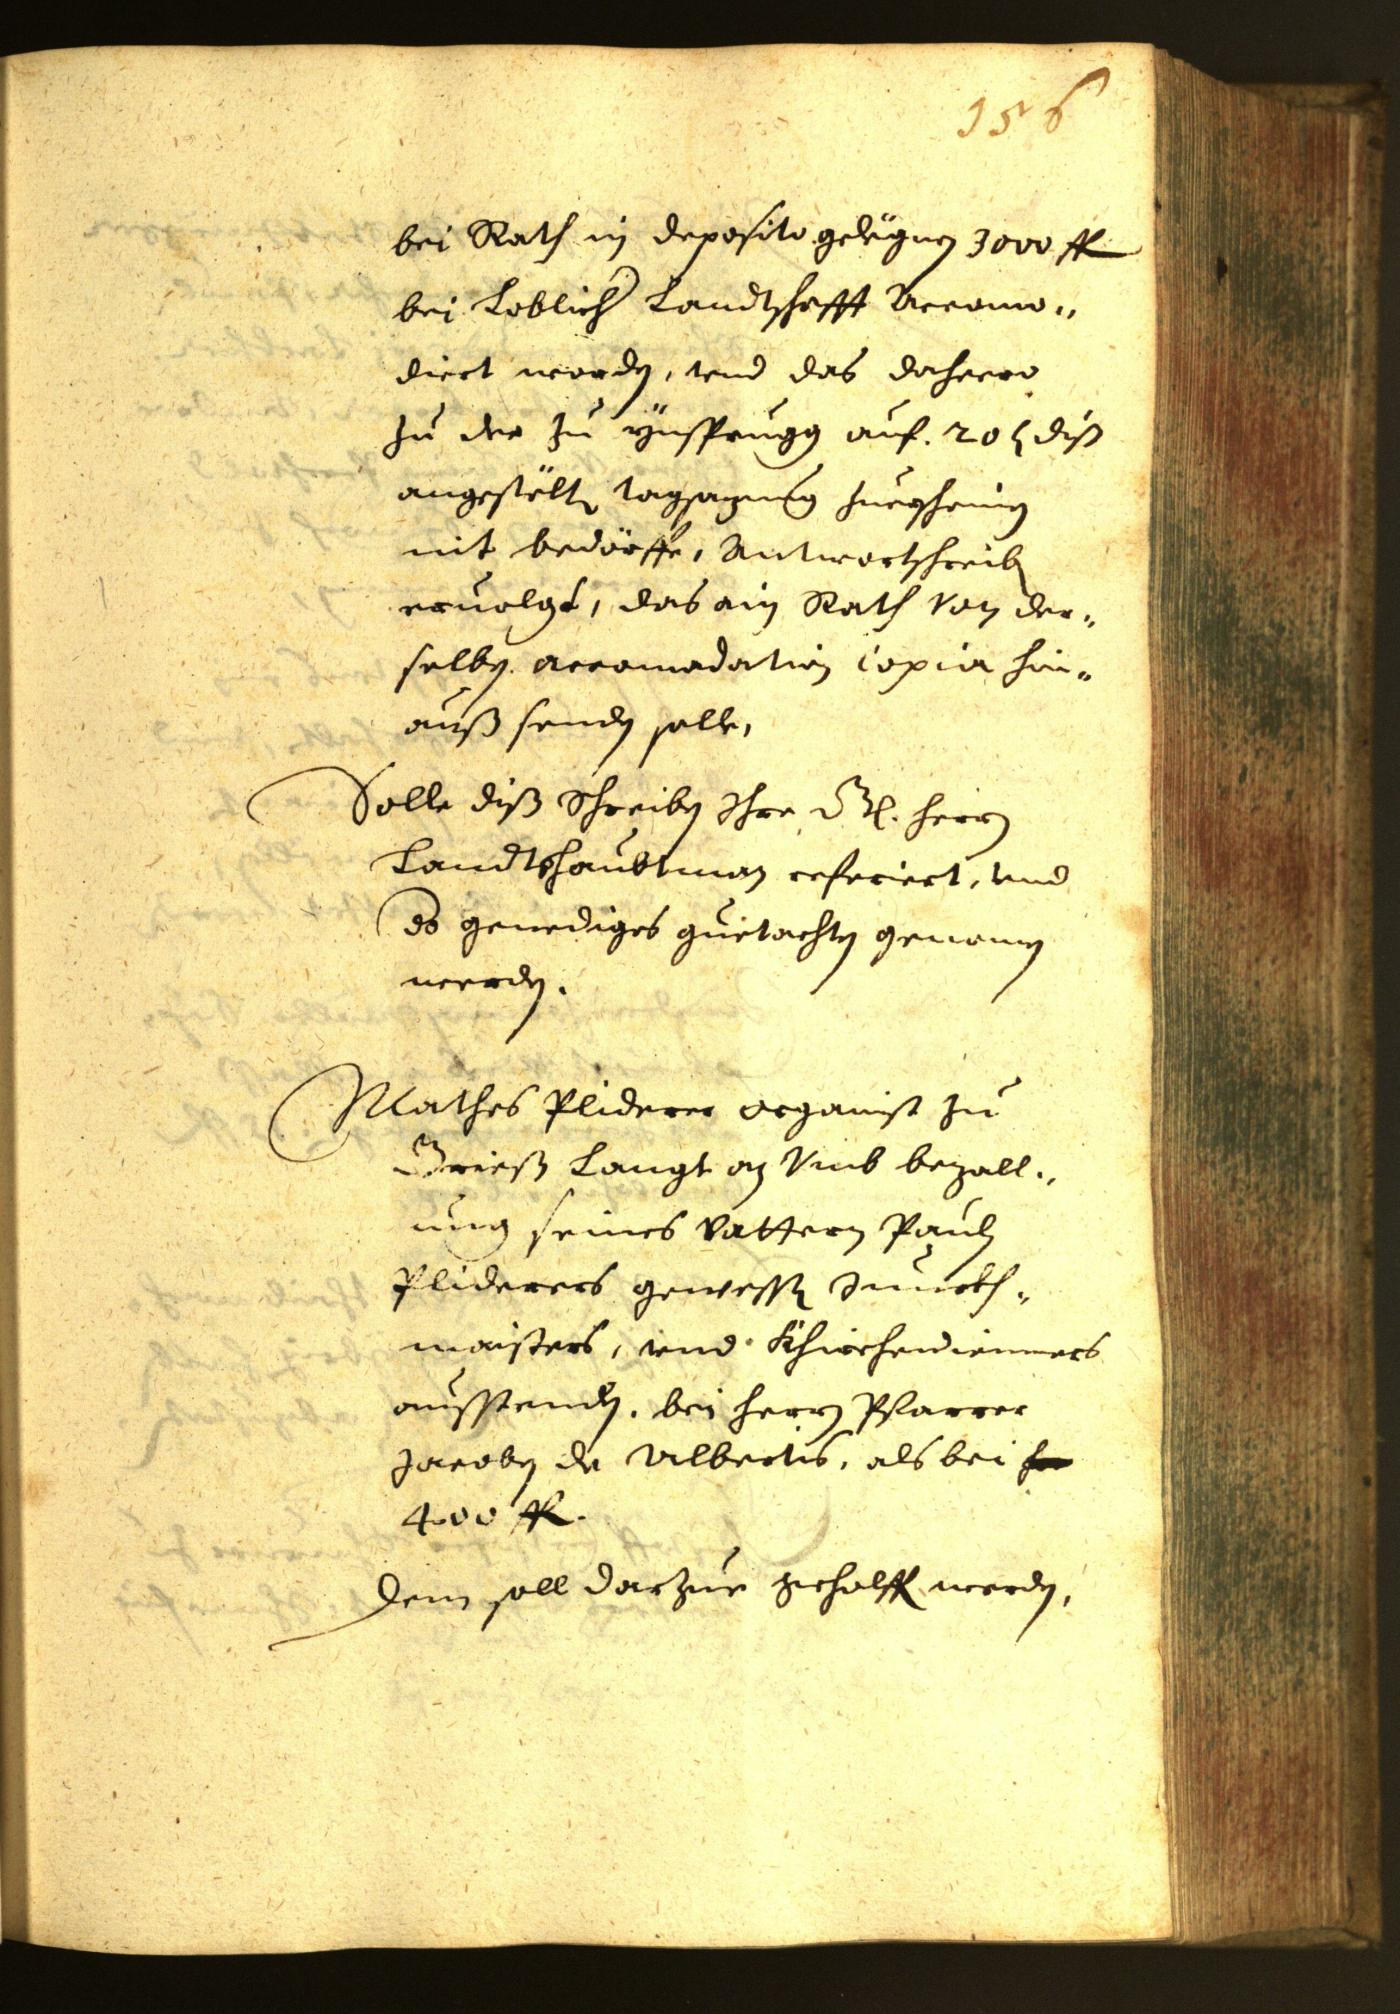 156
bei Rath in deposito gelegnen 3000 fl
bei Loblicher Landtschafft Accomo„
diert worden, vnd das dahero
zu der zu Ynsprugg auf. 20 diß
angestölten tagsazung zuerscheinen
nit bedörffe, Antwortschreiben
eruolgt, das ain Rath von der„
selben accomodation copia hin„
auß senden solle,
Solle diß Schreiben Ihre Gl. herrn
Landtshaubtman referiert, vnd
des genediges guetachten genomen
werden.
Mathes Pliderer organist zu
Grieß Langt an Vmb bezall„
ung seines Vattern Pauln
Pliderers gewessten
maisters, vnd Khirchendienners
ausstenden. bei herrn Pfarrer
Jacoben de Albertis, als bei
400 fl.
Dem soll darzue geholffen werden,